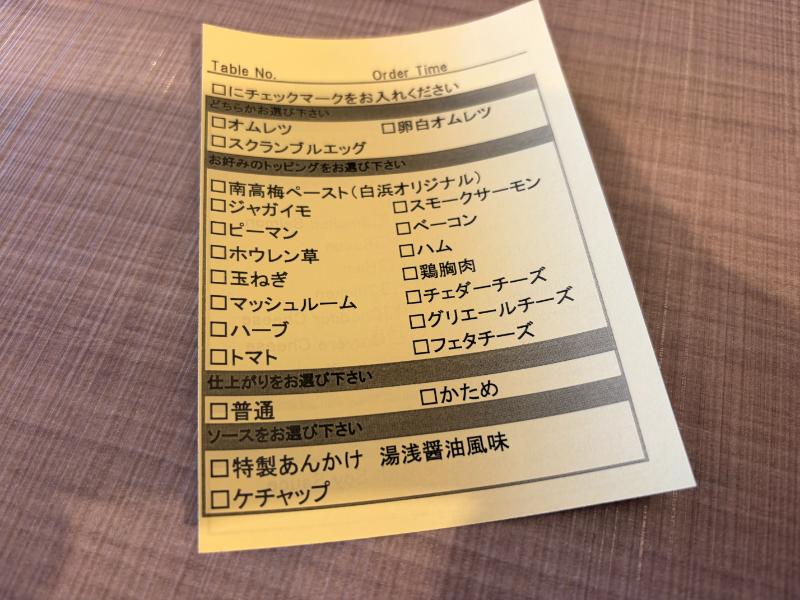 Table No. Order Time
□にチェックマークをお入れください
どちらかお選び下さい
□オムレツ □卵白オムレツ
□スクランブルエッグ
お好みのトッピングをお選び下さい
□南高梅ペースト(白浜オリジナル)
□ジャガイモ □スモークサーモン
□ピーマン □ベーコン
□ホウレン草 □ハム
□玉ねぎ □鶏胸肉
□マッシュルーム □チェダーチーズ
□ハーブ □グリエールチーズ
□トマト □フェタチーズ
仕上がりをお選び下さい
□普通 □かため
ソースをお選び下さい
□特製あんかけ 湯浅醤油風味
□ケチャップ